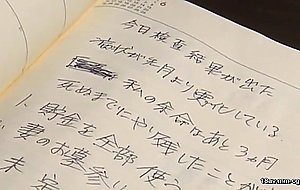 6
今日検査結果が出た
病状が先月より悪化している
私の余命はあと3ヵ月
死ぬまでにやり残したことが
1、貯金を全部使う
妻のお墓参り